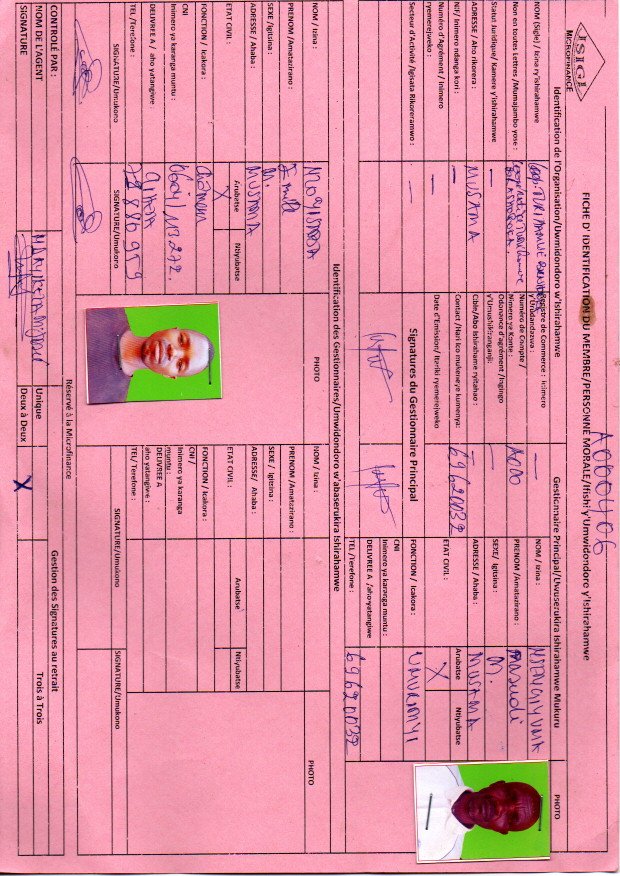 ISIGI
MICROFINANCE
A0000406
FICHE D'IDENTIFICATION DU MEMBRE/PERSONNE MORALE/Ifishi y'Umwidondoro y'Ishirahamwe
Identification de l'Organisation/Uwmidondoro w'Ishirahamwe
Gestionnaire Principal/Uwuserukira Ishirahamwe Mukuru
PHOTO
NOM (Sigle) / Izina ry'ishirahamwe
Non en toutes Lettres /Mumajambo yose :
Statut Juridique/ Kamere y'ishirahamwe
ADRESSE / Aho rikorera :
MUSAMA
NIF/ Inimero ndanga kori :
Numéro d'Agrément / Inimero
ryemerejweko :
Secteur d'Activité /Igisata Rikoreramwo :
Registre de Commerce : Inimero
y'Urudandaza :
Numéro de Compte /
Nimero ya Konte :
A000
Odonance d'agrément /Ingingo
y'Umushikiranganji:
Cible/Abo Ishirahame ryitahao :
Contact /Hari ico mukeneye kumenya:
69620032
Date d'Emission/ Itariki ryemerejweko
Signatures du Gestionnaire Principal
NOM / Izina :
NSENGIYUMVA
PRENOM /Amatazirano :
Masudi
SEXE/ Igitsina :
M.
ADRESSE / Ahaba :
MUSAMA
ETAT CIVIL :
Arubatse
Ntiyubatse
X
FONCTION / Icakora :
UMURIMYI
CNI
Inimero ya karanga muntu :
DELIVREE A /aho yatangiwe
TEL /Terefone :
69620032
Identification des Gestionnaires/Umwidondoro w'abaserukira Ishirahamwe
NOM / Izina :
NOM / Izina :
PHOTO
PHOTO
PRENOM /Amatazirano :
Emile
SEXE /Igitsina :
M.
ADRESSE / Ahaba :
MUSAMA
ETAT CIVIL :
Arubatse
Ntiyubatse
X
FONCTION / Icakora :
CNI
Inimero ya karanga muntu :
DELIVREE A / aho yatangiwe :
TEL /Terefone :
79886959
SIGNATURE/Umukono
SIGNATURE/Umukono
PRENOM /Amatazirano :
SEXE / Igitsina :
ADRESSE/ Ahaba :
ETAT CIVIL :
Arubatse
Ntiyubatse
FONCTION / Icakora :
CNI /
Inimero ya karanga
muntu :
DELIVREE A
aho yatangiwe :
TEL/ Terefone :
SIGNATURE/Umukono
SIGNATURE/Umukono
Réservé à la Microfinance
CONTROLÉ PAR :
NOM DE L'AGENT
SIGNATURE
Gestion des Signatures au retrait
Unique
Deux à Deux
X
Trois à Trois